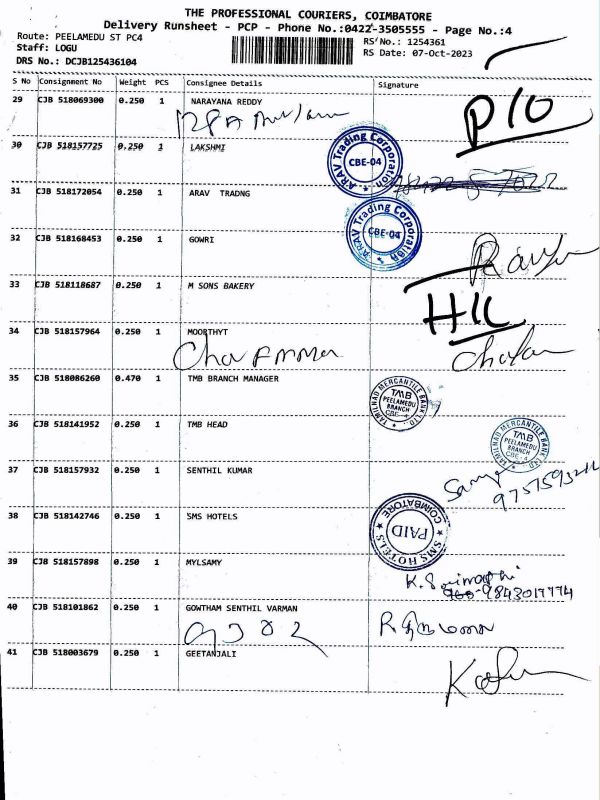 THE PROFESSIONAL COURIERS, COIMBATORE
Delivery Runsheet - PCP - Phone No.:0422-3505555 - Page No.:4
Route: PEELAMEDU ST PC4
RS No.: 1254361
Staff: LOGU
RS Date: 07-Oct-2023
DRS No.: DCJB125436104
S No Consignment No Weight PCS Consignee Details Signature
29 CJB 518069300 0.250 1 NARAYANA REDDY
30 CJB 518157725 0.250 1 LAKSHMI
ARAV Trading Corporation
CBE-04
31 CJB 518172054 0.250 1 ARAV TRADNG
ARAV Trading Corporation
CBE-04
32 CJB 518168453 0.250 1 GOWRI
33 CJB 518118687 0.250 1 M SONS BAKERY
34 CJB 518157964 0.250 1 MOORTHYT
35 CJB 518086260 0.470 1 TMB BRANCH MANAGER
TAMILNAD MERCANTILE BANK LTD.
TMB
PEELAMEDU
BRANCH
CBE-4
36 CJB 518141952 0.250 1 TMB HEAD
TAMILNAD MERCANTILE BANK LTD.
TMB
PEELAMEDU
BRANCH
CBE-4
37 CJB 518157932 0.250 1 SENTHIL KUMAR
38 CJB 518142746 0.250 1 SMS HOTELS
SMS HOTELS
COIMBATORE
PAID
39 CJB 518157898 0.250 1 MYLSAMY
9843017774
40 CJB 518101862 0.250 1 GOWTHAM SENTHIL VARMAN
41 CJB 518003679 0.250 1 GEETANJALI